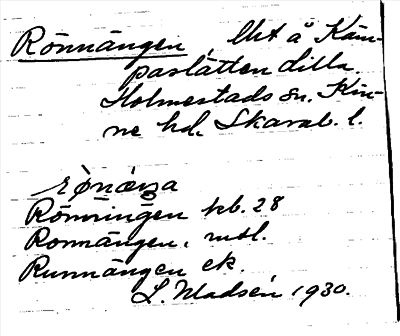 Rönnängen, Ukt å Käm-
paslätten, dilla,
Holmestads sn. Kin-
ne hd. Skarab. l.
rø̀næŋa
Rönningen kb. 28
Ronnängen, mtl.
Runnängen ek.
L. Madsén, 1930.